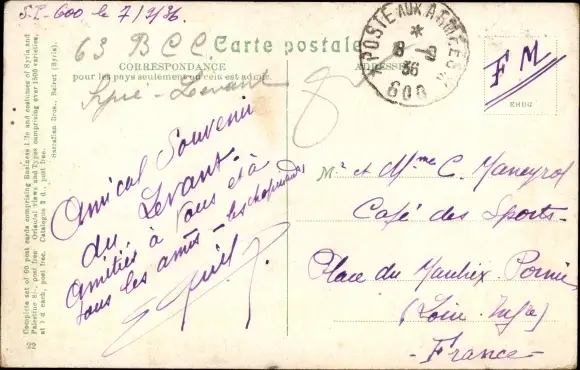 S.P. 600 le 7/9/36.
63 B C C
Carte postale
CORRESPONDANCE
pour les pays seulement où cela est admis.
ADRESSE
Levant
POSTE AUX ARMEES
8-9
36
600
F M
Amical Souvenir
du Levant.
Amitiés à Vous et à
tous les amis -
Mr et Mme C. Maneyrol
Café des Sports -
Place du
(Loire Infre)
- France -
Complete set of 60 post cards comprising Business Life and costumes of Syria and
Palestine post free Oriental views and Types comprising over 1500 varieties.
at 1 d each, post free. Catalogue 3 d., post free.
Sarrafian Bros., Beirut (Syria).
22